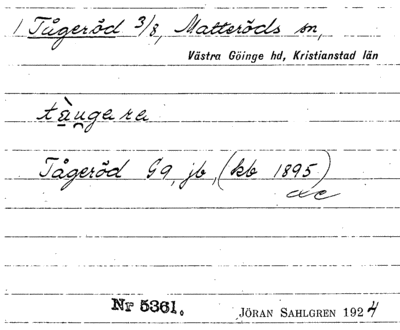 1 Tågeröd 3/8, Matteröds sn,
Västra Göinge hd, Kristianstad län
tàu̯gara
Tågeröd G9, jb, (kb 1895)
Nr 5361.
JÖRAN SAHLGREN 1924